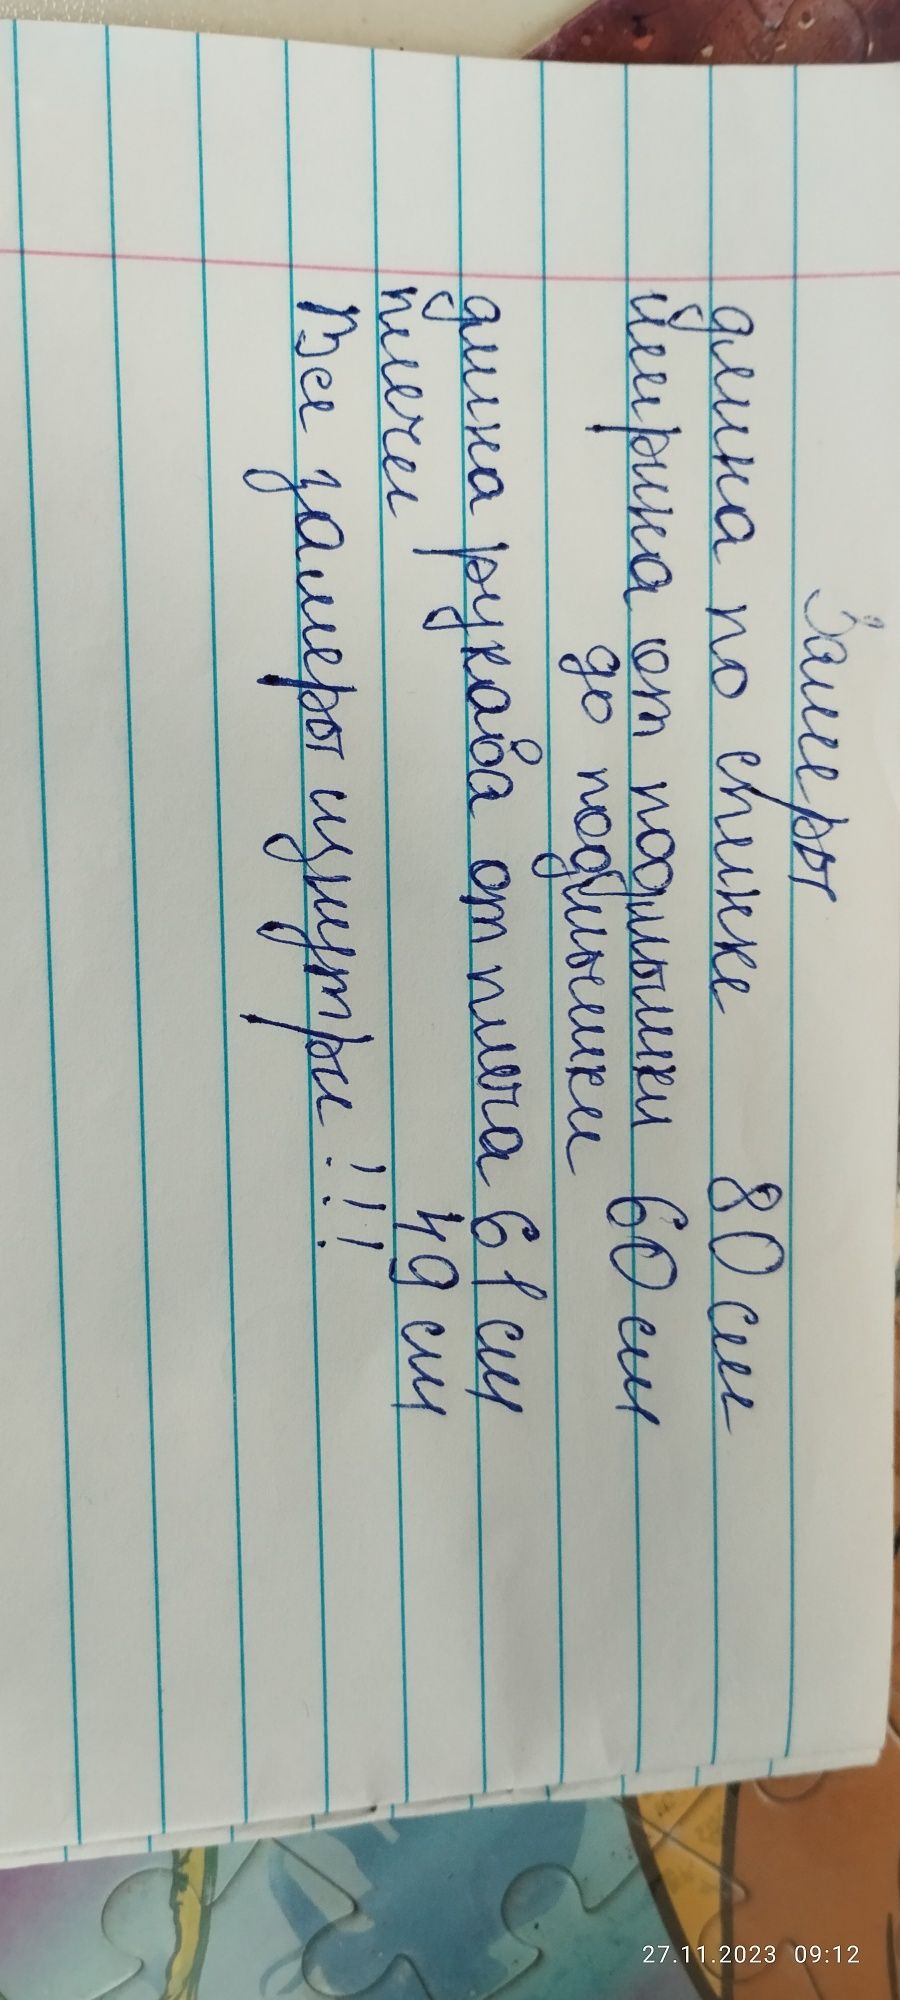 Замеры
длина по спинке 80 см
ширина от подмышки 60 см
до подмышки
длина рукава от плеча 61 см
плечи 49 см
Все замеры изнутри!!!
27.11.2023 09:12